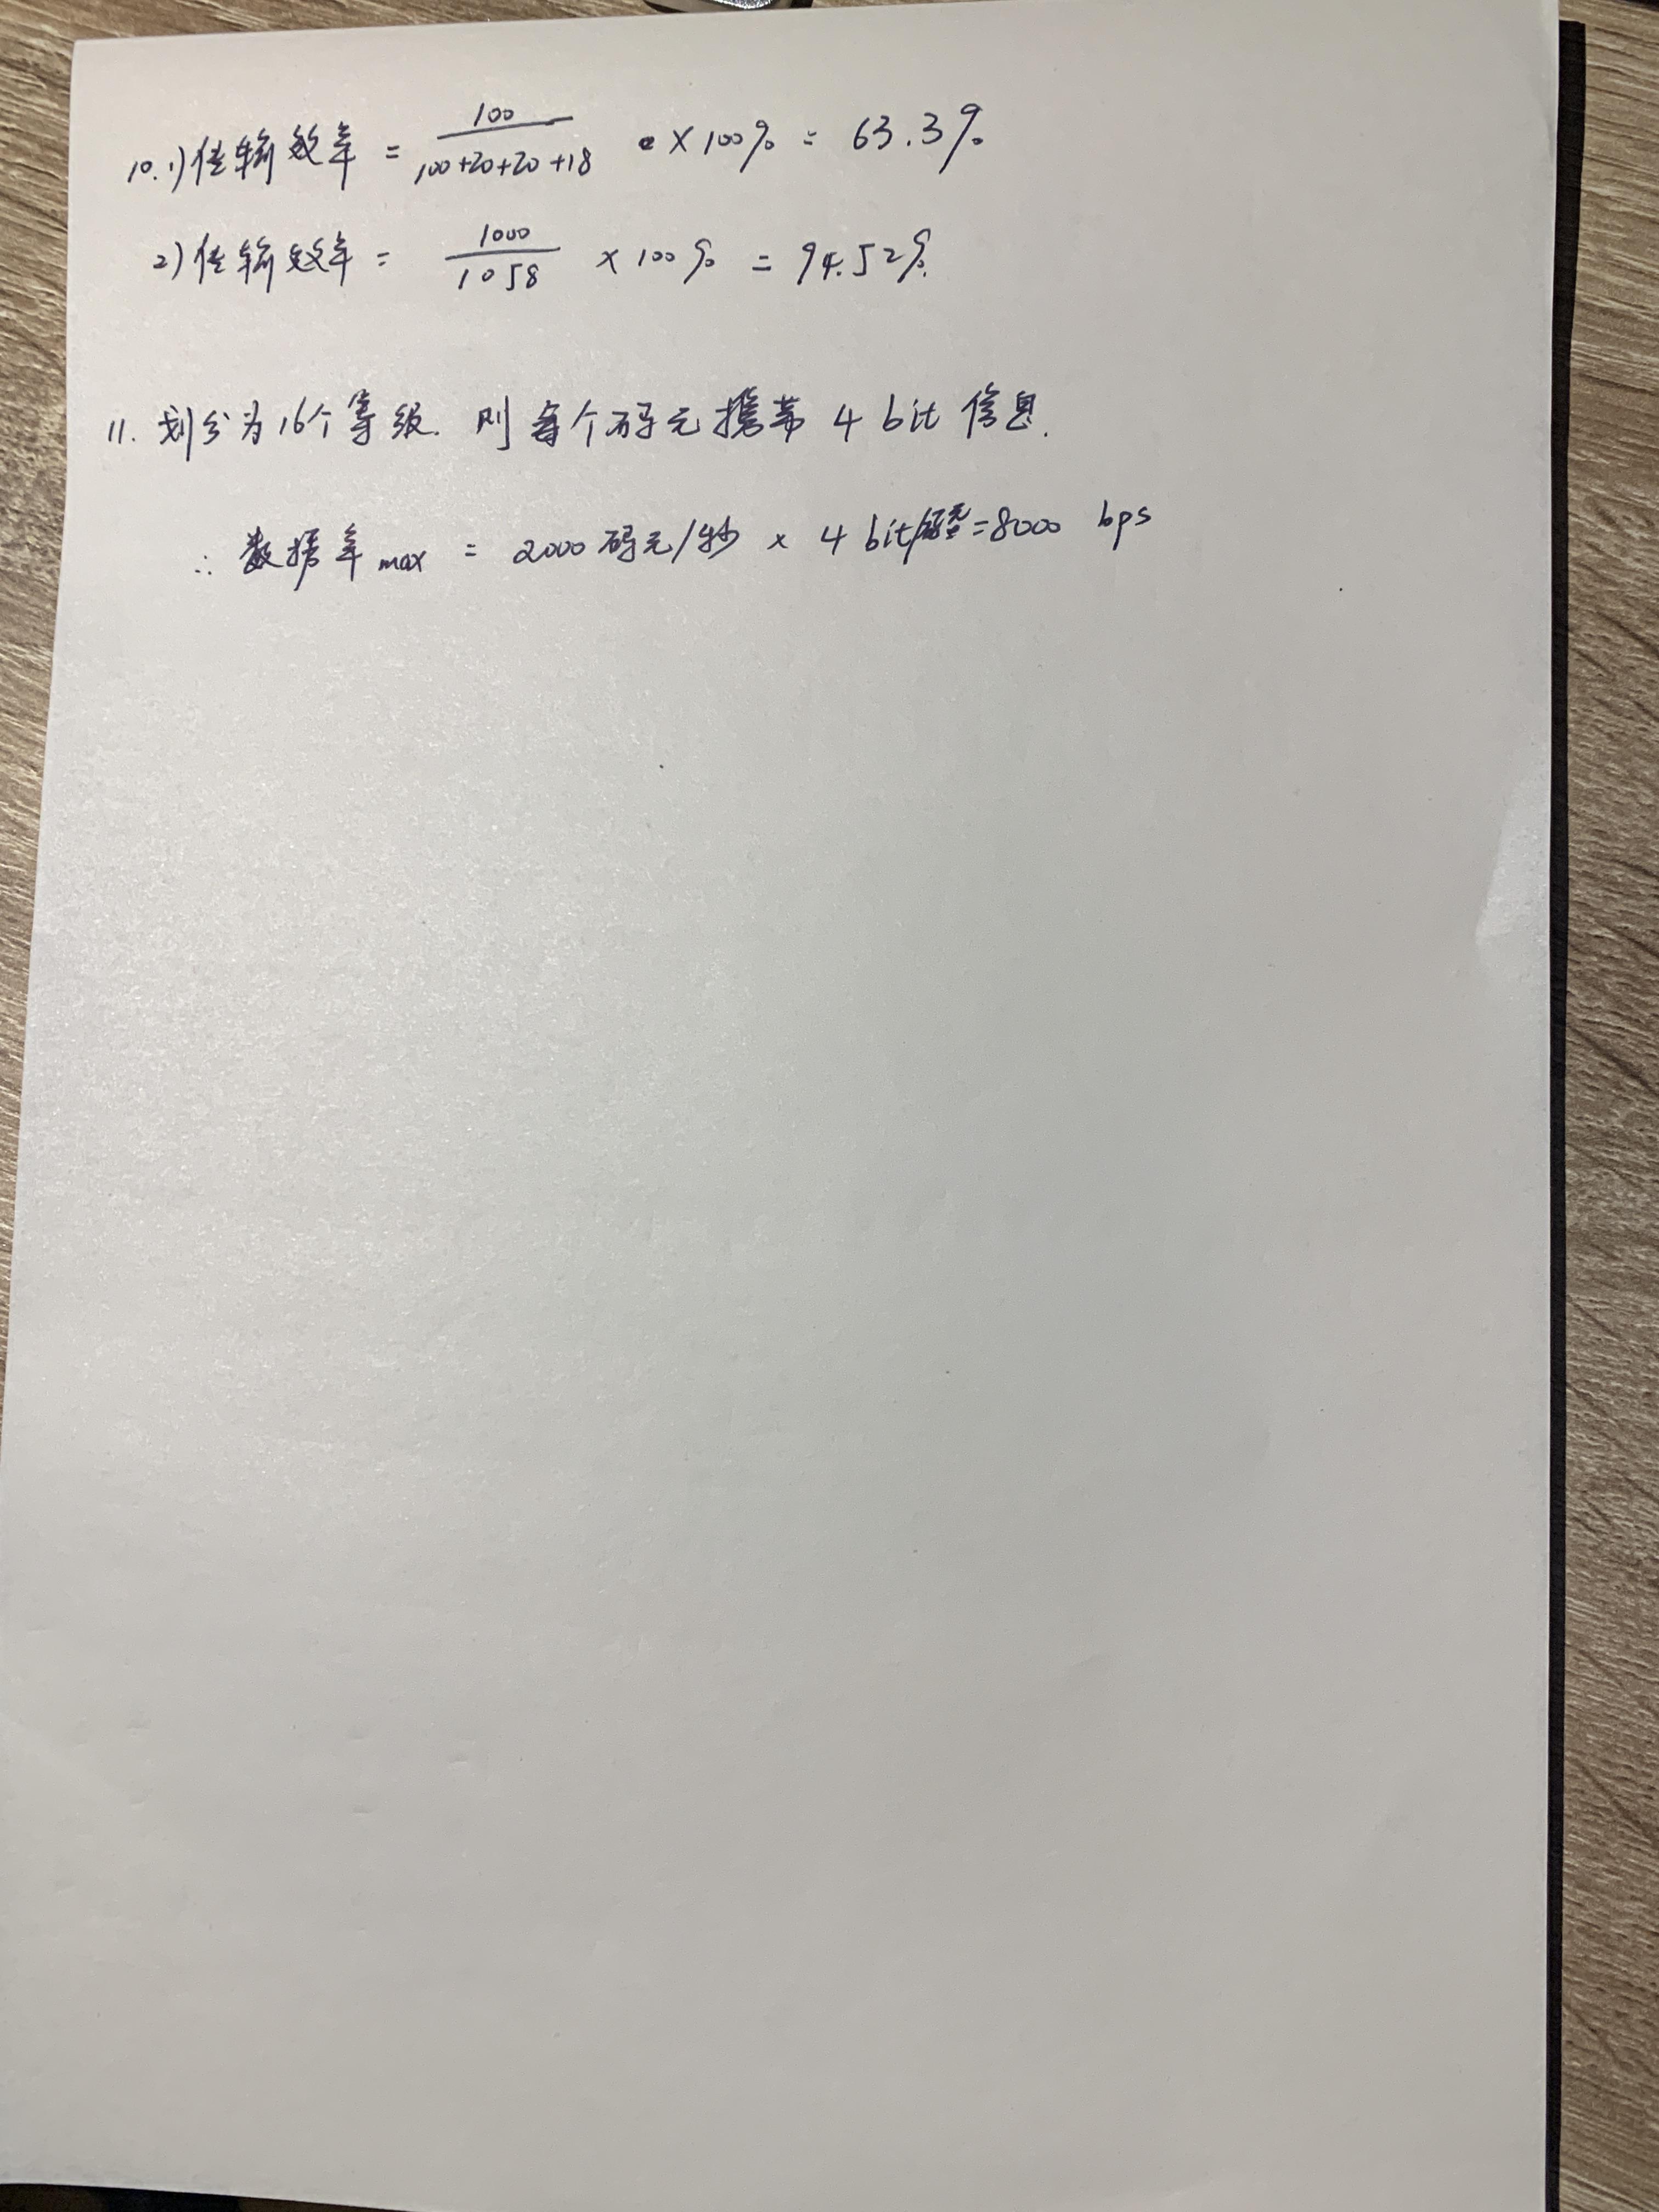 10. 1) 传输效率 = 100/(100+20+20+18) × 100% = 63.3%
2) 传输效率 = 1000/1058 × 100% = 94.52%
11. 划分为16个等级. 则每个码元携带 4 bit 信息.
∴ 数据率max = 2000 码元/秒 × 4 bit/码元 = 8000 bps